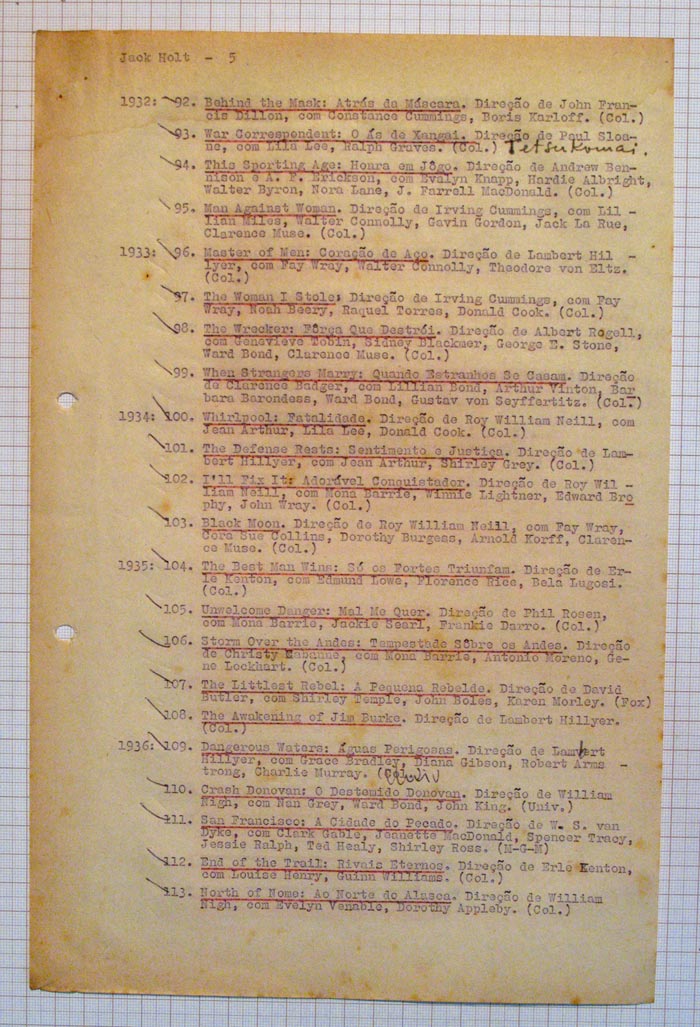 Jack Holt - 5
1932: 92. Behind the Mask: Atrás da Máscara. Direção de John Fran-
cis Dillon, com Constance Cummings, Boris Karloff. (Col.)
93. War Correspondent: O Ás de Xangai. Direção de Paul Sloa-
ne, com Lila Lee, Ralph Graves. (Col.) Tetsu Komai.
94. This Sporting Age: Honra em Jôgo. Direção de Andrew Ben-
nison e A. F. Erickson, com Evalyn Knapp, Hardie Albright,
Walter Byron, Nora Lane, J. Farrell MacDonald. (Col.)
95. Man Against Woman. Direção de Irving Cummings, com Lil -
lian Miles, Walter Connolly, Gavin Gordon, Jack La Rue,
Clarence Muse. (Col.)
1933: 96. Master of Men: Coração de Aço. Direção de Lambert Hil -
lyer, com Fay Wray, Walter Connolly, Theodore von Eltz.
(Col.)
97. The Woman I Stole: Direção de Irving Cummings, com Fay
Wray, Noah Beery, Raquel Torres, Donald Cook. (Col.)
98. The Wrecker: Fôrça Que Destrói. Direção de Albert Rogell,
com Genevieve Tobin, Sidney Blackmer, George E. Stone,
Ward Bond, Clarence Muse. (Col.)
99. When Strangers Marry: Quando Estranhos Se Casam. Direção
de Clarence Badger, com Lillian Bond, Arthur Vinton, Bar
bara Barondess, Ward Bond, Gustav von Seyffertitz. (Col.)
1934: 100. Whirlpool: Fatalidade. Direção de Roy William Neill, com
Jean Arthur, Lila Lee, Donald Cook. (Col.)
101. The Defense Rests: Sentimento e Justiça. Direção de Lam-
bert Hillyer, com Jean Arthur, Shirley Grey. (Col.)
102. I'll Fix It: Adorável Conquistador. Direção de Roy Wil -
liam Neill, com Mona Barrie, Winnie Lightner, Edward Bro
phy, John Wray. (Col.)
103. Black Moon. Direção de Roy William Neill, com Fay Wray,
Cora Sue Collins, Dorothy Burgess, Arnold Korff, Claren-
ce Muse. (Col.)
1935: 104. The Best Man Wins: Só os Fortes Triunfam. Direção de Er-
le Kenton, com Edmund Lowe, Florence Rice, Bela Lugosi.
(Col.)
105. Unwelcome Danger: Mal Me Quer. Direção de Phil Rosen,
com Mona Barrie, Jackie Searl, Frankie Darro. (Col.)
106. Storm Over the Andes: Tempestade Sôbre os Andes. Direção
de Christy Cabanne, com Mona Barrie, Antonio Moreno, Ge-
ne Lockhart. (Col.)
107. The Littlest Rebel: A Pequena Rebelde. Direção de David
Butler, com Shirley Temple, John Boles, Karen Morley. (Fox)
108. The Awakening of Jim Burke. Direção de Lambert Hillyer.
(Col.)
1936: 109. Dangerous Waters: Águas Perigosas. Direção de Lambert
Hillyer, com Grace Bradley, Diana Gibson, Robert Arms -
trong, Charlie Murray.
110. Crash Donovan: O Destemido Donovan. Direção de William
Nigh, com Nan Grey, Ward Bond, John King. (Univ.)
111. San Francisco: A Cidade do Pecado. Direção de W. S. van
Dyke, com Clark Gable, Jeanette MacDonald, Spencer Tracy,
Jessie Ralph, Ted Healy, Shirley Ross. (M-G-M)
112. End of the Trail: Rivais Eternos. Direção de Erle Kenton,
com Louise Henry, Guinn Williams. (Col.)
113. North of Nome: Ao Norte do Alasca. Direção de William
Nigh, com Evelyn Venable, Dorothy Appleby. (Col.)